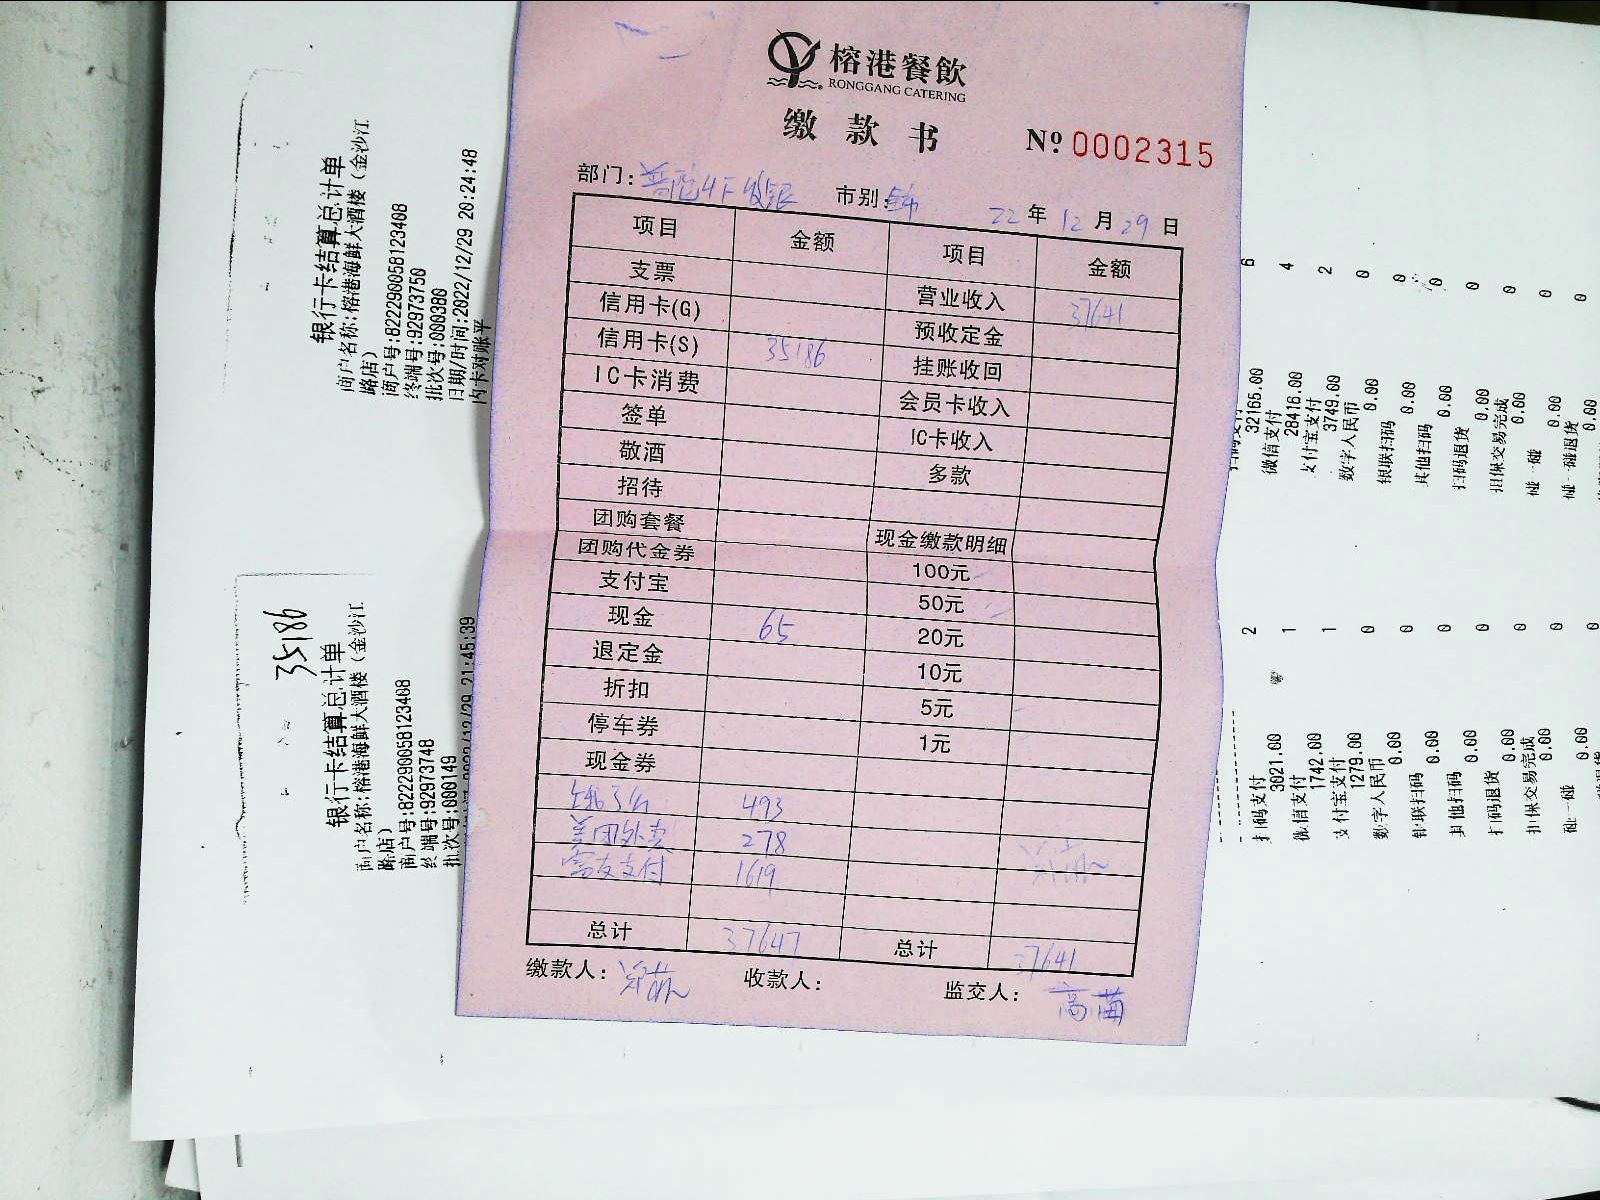 榕港餐飲
RONGGANG CATERING
缴款书 № 0002315
部门: 普陀4F收银 市别: 22年12月29日
项目 金额 项目 金额
支票 营业收入 37641
信用卡(G) 预收定金
信用卡(S) 35186 挂账收回
IC卡消费 会员卡收入
签单 IC卡收入
敬酒 多款
招待
团购套餐 现金缴款明细
团购代金券 100元
支付宝 50元
现金 65 20元
退定金 10元
折扣 5元
停车券 1元
现金券
493
美团外卖 278
支付 1619
总计 37641 总计 37641
缴款人: 收款人: 监交人: 高苗
银行卡结算总计单
商户名称:榕港海鲜大酒楼(金沙江
路店)
商户号:822290058123408
终端号:92973750
批次号:000380
日期/时间:2022/12/29 20:24:48
内卡对账平
35186
银行卡结算总计单
商户名称:榕港海鲜大酒楼(金沙江
路店)
商户号:822290058123408
终端号:92973748
批次号:000149
2022/12/29 21:45:39
扫码支付
6 32165.00
微信支付
4 28416.00
支付宝支付
2 3749.00
数字人民币
0 0.00
银联扫码
0 0.00
其他扫码
0 0.00
扫码退货
0 0.00
担保交易完成
0 0.00
碰一碰
0 0.00
碰一碰退货
0 0.00
扫码支付
2 3021.00
微信支付
1 1742.00
支付宝支付
1 1279.00
数字人民币
0 0.00
银联扫码
0 0.00
其他扫码
0 0.00
扫码退货
0 0.00
担保交易完成
0 0.00
碰一碰
0 0.00